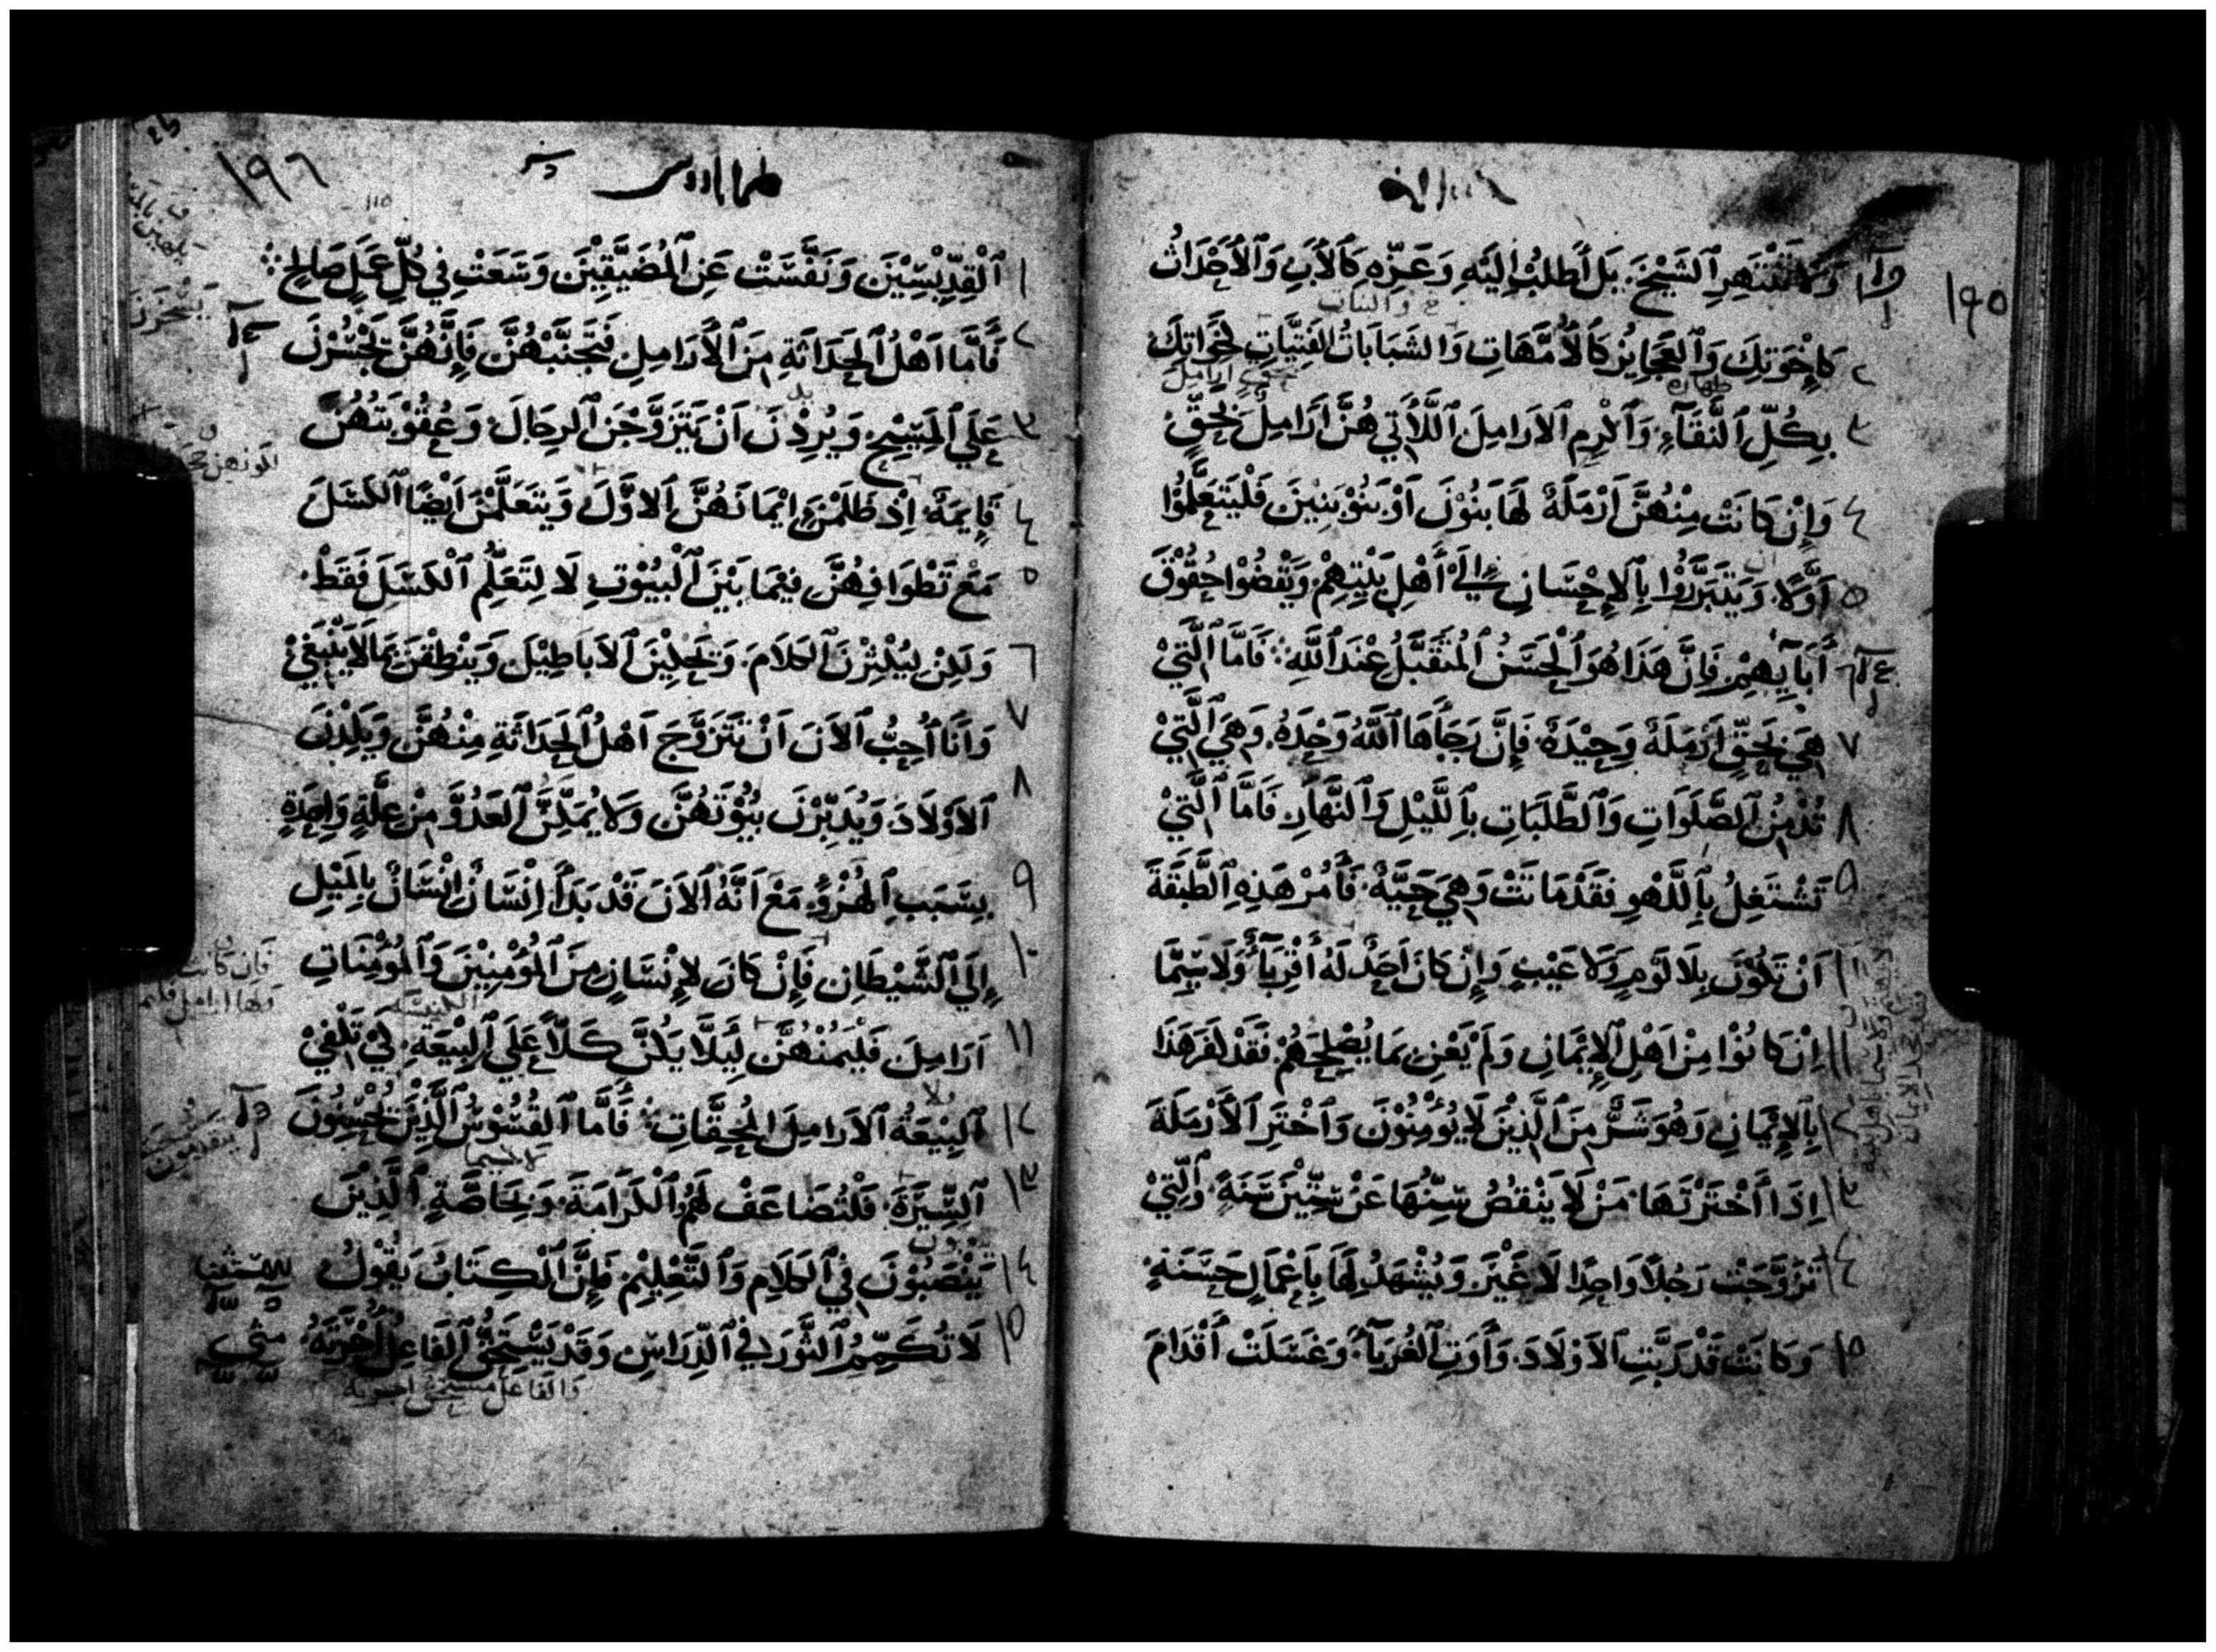 ١٩٥
وَلَا تَنْتَهِرِ ٱلشَّيْخَ بَلِ ٱطْلُبْ اِلَيْهِ وَعَزِّهِ كَٱلْأَبِ وَٱلْأَحْدَاثُ
٢ كَاِخْوَتِكَ وَٱلعَجَايِزُ كَٱلْأُمَّهَاتِ وَالشَبَابَاتُ الفَتِيَّاتِ كَخَوَاتِكَ
٣ بِكُلِّ ٱلنَّقَآءِ وَٱكْرِمِ ٱلاَرَامِلَ ٱللَّاتِي هُنَّ اَرَامِلُ بِحَقٍّ
٤ وَاِنْ كَانَتْ مِنْهُنَّ اَرْمَلَةٌ لَهَا بَنُوْنَ اَوْ بَنُوْ بَنِيْنَ فَلْيَتَعَلَّمُوْا
٥ اَوَّلًا وَيَتَبَرَّرُوْا بِٱلاِحْسَانِ اِلَى أَهْلِ بَيْتِهِمْ وَيَقْضُوْا حُقُوْقَ
٦ أَبَآيِهِمْ فَاِنَّ هَذَا هُوَ ٱلْحَسَنُ ٱلمُتَقَبَّلُ عِنْدَ ٱللّٰهِ فَاَمَّا ٱلَّتِيْ
٧ هِيَ بِحَقٍّ اَرْمَلَةٌ وَحِيْدَةٌ فَاِنَّ رَجَآهَا ٱللّٰهُ وَحْدَهُ وَهِيَ ٱلَّتِيْ
٨ تُدْمِنُ ٱلصَّلَوَاتِ وَٱلطَّلَبَاتِ بِٱللَّيْلِ وَٱلنَّهَارِ فَاَمَّا ٱلَّتِيْ
٩ تَشْتَغِلُ بِٱللَّهْوِ فَقَدْ مَاتَتْ وَهِيَ حَيَّةٌ فَأْمُرْ هَذِهِ ٱلطَّبَقَةَ
١٠ اَنْ تَكُوْنَ بِلَا لَوْمٍ وَلَا عَيْبٍ وَاِنْ كَانَ اَحَدٌ لَهُ أَقْرِبَآءُ وَلَاسِيَّمَا
١١ اِنْ كَانُوْا مِنْ اَهْلِ ٱلاِيْمَانِ وَلَمْ يَعْنِ بِمَا يُصْلِحُهُمْ فَقَدْ كَفَرَ هَذَا
١٢ بِٱلاِيْمَانِ وَهُوَ شَرٌّ مِنَ ٱلَّذِيْنَ لَا يُؤْمِنُوْنَ وَٱخْتَرِ ٱلأَرْمَلَةَ
١٣ اِذَا ٱخْتَرْتَهَا مَنْ لَا يَنْقُصُ سِنُّهَا عَنْ سِتِّيْنَ سَنَةً وَٱلَّتِيْ
١٤ تَزَوَّجَتْ رَجُلًا وَاحِدًا لَا غَيْرَ وَيُشْهَدُ لَهَا بِأَعْمَالٍ حَسَنَةٍ
١٥ وَكَانَتْ قَدْ رَبَّتِ ٱلاَوْلَادَ وَأَوَتِ ٱلغُرَبَآءَ وَغَسَلَتْ أَقْدَامَ
١٩٦
طيماثاوس
١ ٱلْقِدِّيْسِيْنَ وَنَفَّسَتْ عَنِ ٱلمُضَيَّقِيْنَ وَسَعَتْ فِي كُلِّ عَمَلٍ صَالِحٍ
٢ فَأَمَّا اَهْلُ ٱلحَدَاثَةِ مِنَ ٱلأَرَامِلِ فَتَجَنَّبْهُنَّ فَاِنَّهُنَّ يَجْسُرْنَ
٣ عَلَى ٱلمَسِيْحِ وَيُرِدْنَ اَنْ يَتَزَوَّجْنَ ٱلرِجَالَ وَعُقُوْبَتُهُنَّ
٤ قَايِمَةٌ اِذْ ظَلَمْنَ اِيْمَانَهُنَّ ٱلاَوَّلَ وَيَتَعَلَّمْنَ اَيْضًا ٱلكَسَلَ
٥ مَعَ تَطْوَافِهِنَّ فِيْمَا بَيْنَ ٱلْبُيُوْتِ لَا لِتَعَلُّمِ ٱلْكَسَلِ فَقَطْ
٦ وَلَكِنْ لِيُكْثِرْنَ ٱلكَلَامَ وَتَحْلِيْنَ ٱلاَبَاطِيْلَ وَيَنْطِقْنَ بِمَا لَا يَنْبَغِيْ
٧ وَاَنَا اُحِبُّ ٱلاَنَ اَنْ تَتَزَوَّجَ اَهْلُ ٱلحَدَاثَةِ مِنْهُنَّ وَيَلِدْنَ
٨ ٱلاَوْلَادَ وَيُدَبِّرْنَ بُيُوْتَهُنَّ وَلَا يُمَكِّنَّ ٱلعَدُوَّ مِنْ عِلَّةٍ وَاحِدَةٍ
٩ بِسَبَبِ ٱلهُزْؤِ مَعَ اَنَّهُ ٱلاَنَ قَدْ بَدَأَ اِنْسَانٌ اِنْسَانٌ بِالمَيْلِ
١٠ اِلَى ٱلشَّيْطَانِ فَاِنْ كَانَ لِاِنْسَانٍ مِنَ ٱلمُؤْمِنِيْنَ وَٱلمُؤْمِنَاتِ
١١ اَرَامِلَ فَلْيَمُنْهُنَّ لِيَلَّا يَكُنَّ كَلًّا عَلَى ٱلبِيْعَةِ لِكَيْ تَكْفِيْ
١٢ ٱلبِيْعَةُ ٱلاَرَامِلَ المُحِقَّاتِ فَأَمَّا ٱلقُسُوْسُ ٱلَّذِيْنَ يُحْسِنُوْنَ
١٣ ٱلسِّيْرَةَ فَلْتُضَاعَفْ لَهُمُ ٱلكَرَامَةَ وَبِخَاصَّةٍ ٱلَّذِيْنَ
١٤ يَنْصَبُوْنَ فِي ٱلكَلَامِ وَٱلتَّعْلِيْمِ فَاِنَّ ٱلْكِتَابَ يَقُوْلُ
١٥ لَا تُكَمِّمِ ٱلثَّوْرَ فِي ٱلدِّرَاسِ وَقَدْ يَسْتَحِقُّ ٱلفَاعِلُ أُجْرَتَهُ متى
والفاعل مستحق اجرته